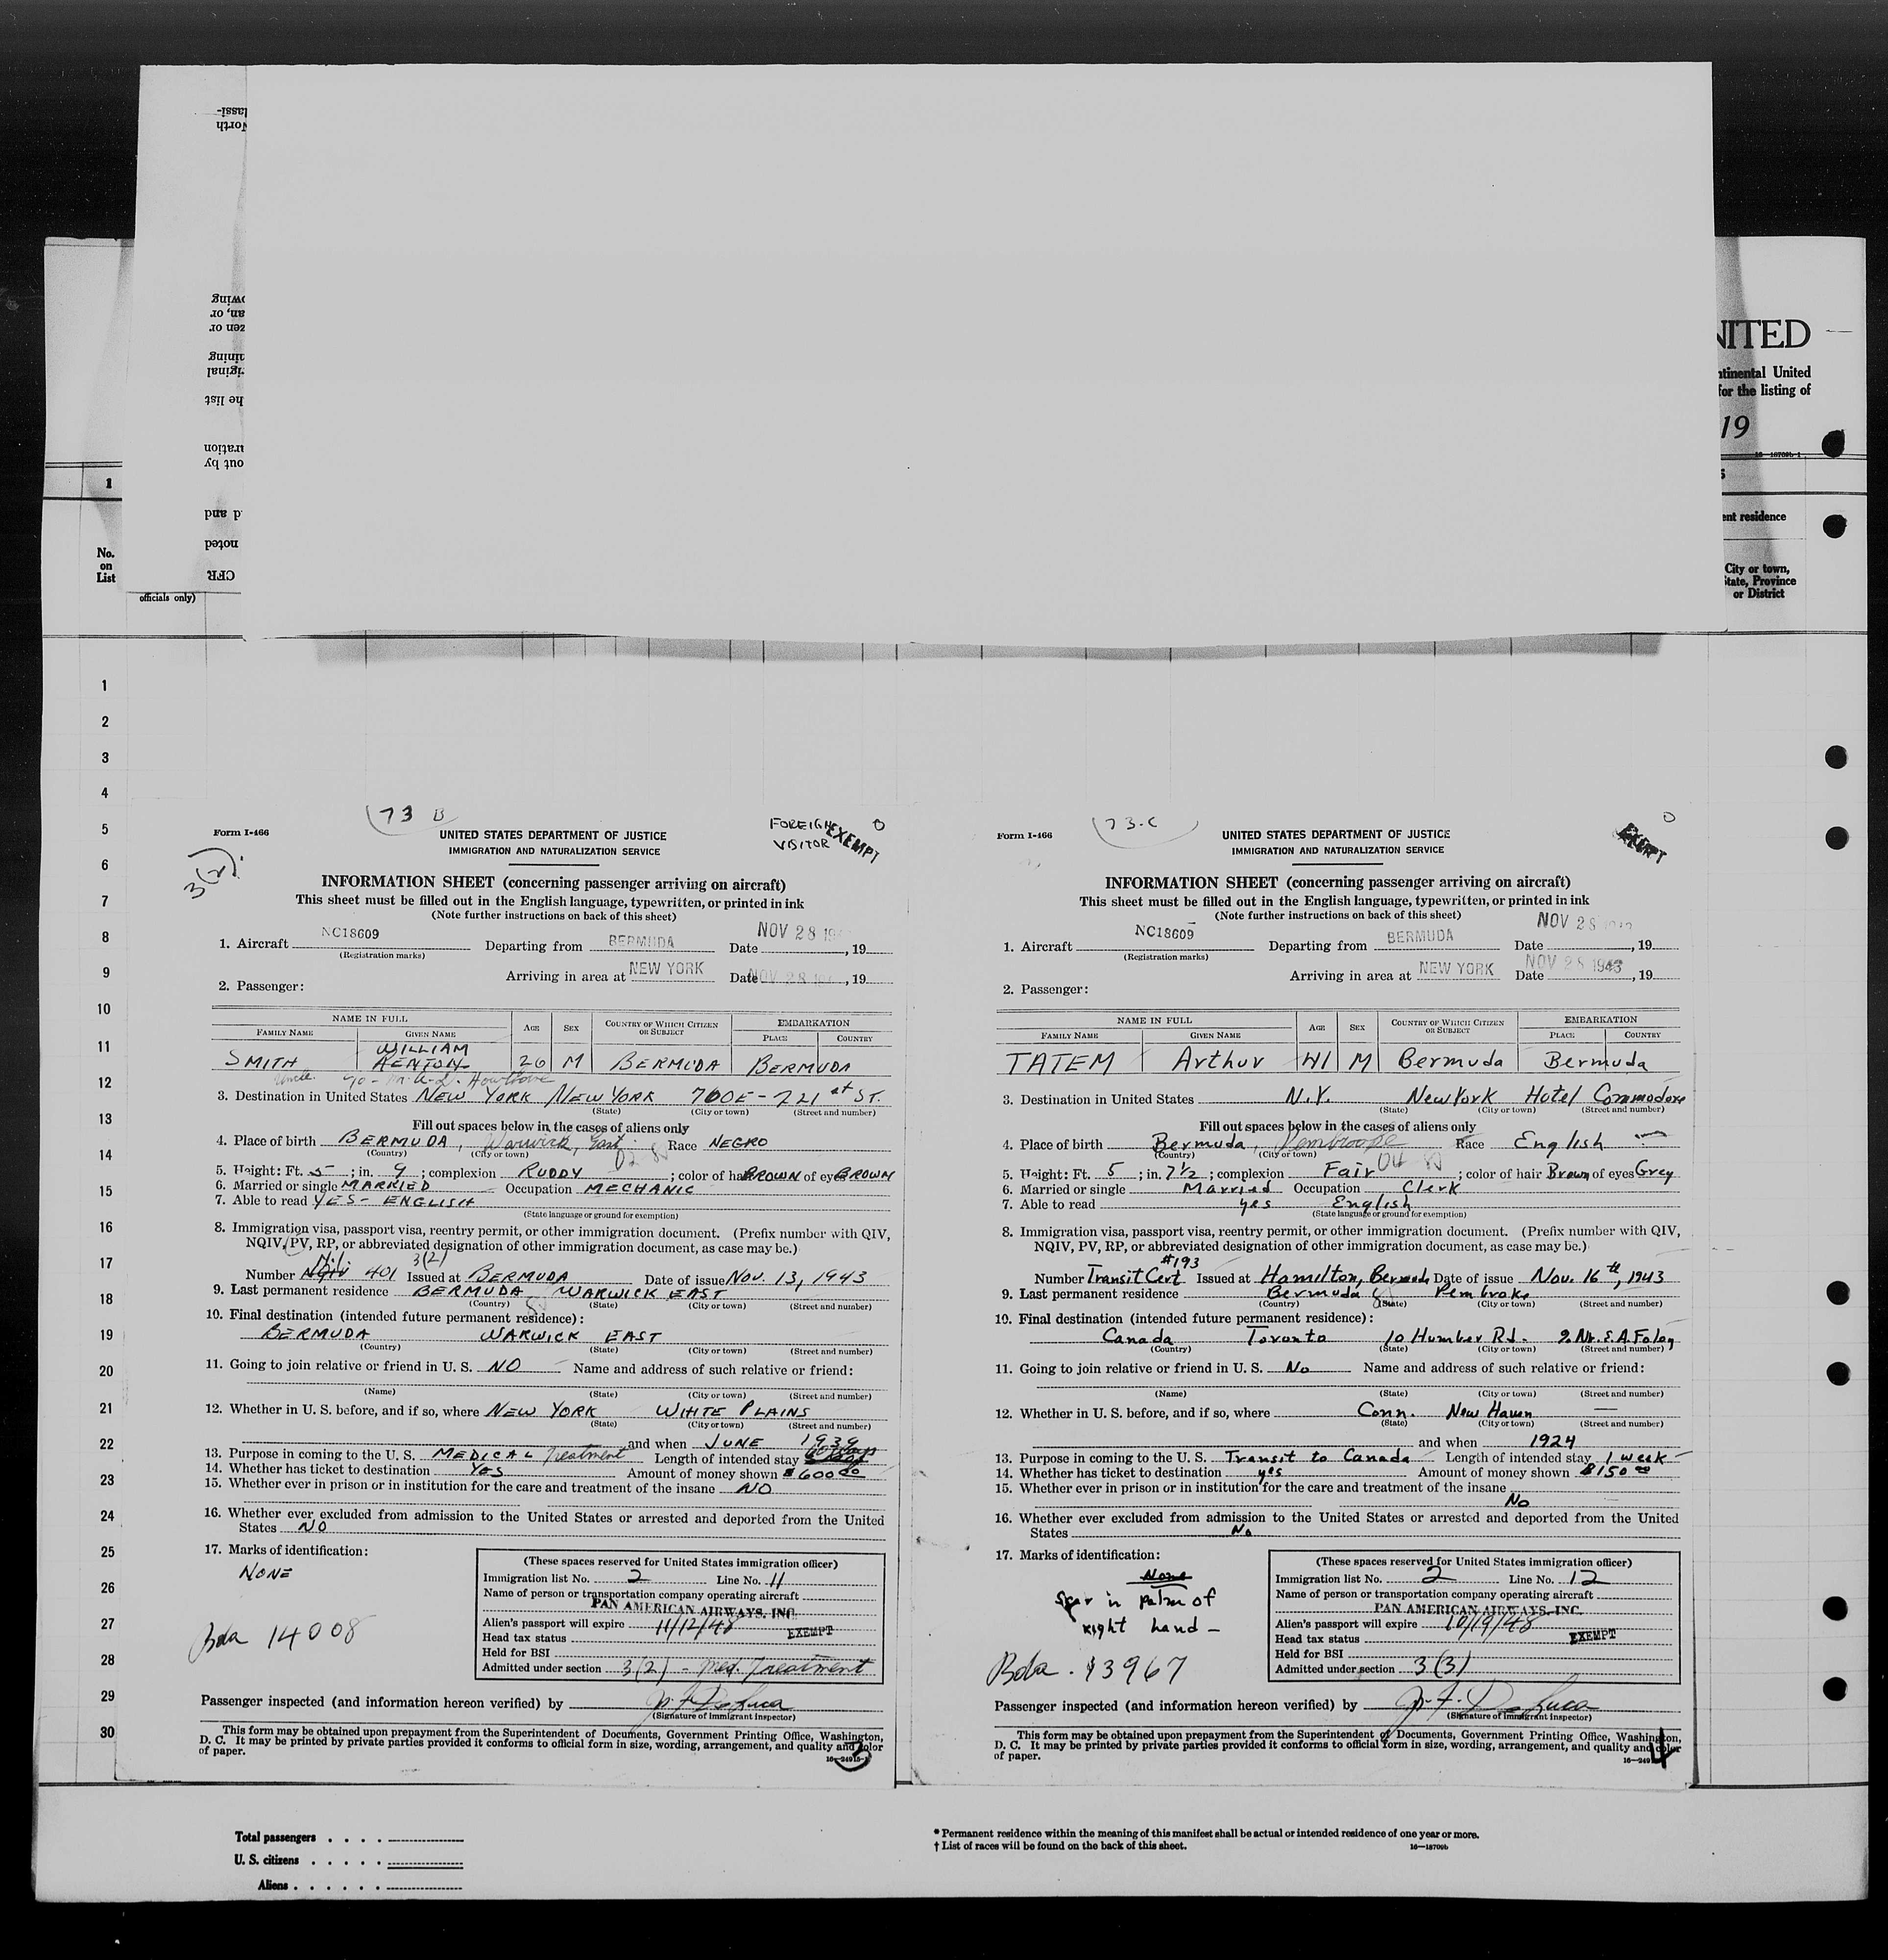 NITED
ntinental United
for the listing of
19
16—18709b-1
1
ent residence
No.
on
List
City or town,
State, Province
or District
officials only)
1
2
3
4
5
6
7
8
9
10
11
12
13
14
15
16
17
18
19
20
21
22
23
24
25
26
27
28
29
30
73 B
Form I-466
UNITED STATES DEPARTMENT OF JUSTICE
IMMIGRATION AND NATURALIZATION SERVICE
FOREIGN
VISITOR
EXEMPT
3(2).
INFORMATION SHEET (concerning passenger arriving on aircraft)
This sheet must be filled out in the English language, typewritten, or printed in ink
(Note further instructions on back of this sheet)
1. Aircraft NC18609 Departing from BERMUDA Date NOV 28 19 , 19
(Registration marks)
Arriving in area at NEW YORK Date NOV 28 , 19
2. Passenger:
NAME IN FULL AGE SEX COUNTRY OF WHICH CITIZEN OR SUBJECT EMBARKATION
FAMILY NAME GIVEN NAME PLACE COUNTRY
SMITH WILLIAM KENTON 26 M BERMUDA BERMUDA
Uncle.
3. Destination in United States NEW YORK NEW YORK 760E - 221 st ST.
(State) (City or town) (Street and number)
Fill out spaces below in the cases of aliens only
4. Place of birth BERMUDA, Warwick, East. Race NEGRO
(Country) (City or town)
5. Height: Ft. 5 ; in. 9 ; complexion RUDDY ; color of hair BROWN of eyes BROWN
6. Married or single MARRIED Occupation MECHANIC
7. Able to read YES - ENGLISH
(State language or ground for exemption)
8. Immigration visa, passport visa, reentry permit, or other immigration document. (Prefix number with QIV,
NQIV, PV, RP, or abbreviated designation of other immigration document, as case may be.)
3(2)
Number NQIV 401 Issued at BERMUDA Date of issue Nov. 13, 1943
9. Last permanent residence BERMUDA WARWICK EAST
(Country) (State) (City or town) (Street and number)
10. Final destination (intended future permanent residence):
BERMUDA WARWICK EAST
(Country) (State) (City or town) (Street and number)
11. Going to join relative or friend in U. S. NO Name and address of such relative or friend:
(Name) (State) (City or town) (Street and number)
12. Whether in U. S. before, and if so, where NEW YORK WHITE PLAINS
(State) (City or town) (Street and number)
and when JUNE 1939
13. Purpose in coming to the U. S. MEDICAL Treatment Length of intended stay
14. Whether has ticket to destination YES Amount of money shown $600 00
15. Whether ever in prison or in institution for the care and treatment of the insane NO
16. Whether ever excluded from admission to the United States or arrested and deported from the United
States NO
17. Marks of identification:
NONE
Bda 14008
(These spaces reserved for United States immigration officer)
Immigration list No. 2 Line No. 11
Name of person or transportation company operating aircraft
PAN AMERICAN AIRWAYS, INC.
Alien's passport will expire 11/12/48
Head tax status EXEMPT
Held for BSI
Admitted under section 3(2) - Med. Treatment
Passenger inspected (and information hereon verified) by
(Signature of immigrant inspector)
This form may be obtained upon prepayment from the Superintendent of Documents, Government Printing Office, Washington,
D. C. It may be printed by private parties provided it conforms to official form in size, wording, arrangement, and quality and color
of paper.
3
73-C
Form I-466
UNITED STATES DEPARTMENT OF JUSTICE
IMMIGRATION AND NATURALIZATION SERVICE
EXEMPT
INFORMATION SHEET (concerning passenger arriving on aircraft)
This sheet must be filled out in the English language, typewritten, or printed in ink
(Note further instructions on back of this sheet)
1. Aircraft NC18609 Departing from BERMUDA Date NOV 28 , 19
(Registration marks)
Arriving in area at NEW YORK Date NOV 28 1943 , 19
2. Passenger:
NAME IN FULL AGE SEX COUNTRY OF WHICH CITIZEN OR SUBJECT EMBARKATION
FAMILY NAME GIVEN NAME PLACE COUNTRY
TATEM Arthur 41 M Bermuda Bermuda
3. Destination in United States N.Y. New York Hotel Commodore
(State) (City or town) (Street and number)
Fill out spaces below in the cases of aliens only
4. Place of birth Bermuda, Race English
(Country) (City or town)
5. Height: Ft. 5 ; in. 7½ ; complexion Fair ; color of hair Brown of eyes Grey
6. Married or single Married Occupation Clerk
7. Able to read yes English
(State language or ground for exemption)
8. Immigration visa, passport visa, reentry permit, or other immigration document. (Prefix number with QIV,
NQIV, PV, RP, or abbreviated designation of other immigration document, as case may be.)
#193
Number Transit Cert Issued at Hamilton, Bermuda Date of issue Nov. 16th, 1943
9. Last permanent residence Bermuda Pembroke
(Country) (State) (City or town) (Street and number)
10. Final destination (intended future permanent residence):
Canada Toronto 10 Humber Rd. % Mr. E.A. Foley
(Country) (State) (City or town) (Street and number)
11. Going to join relative or friend in U. S. No Name and address of such relative or friend:
(Name) (State) (City or town) (Street and number)
12. Whether in U. S. before, and if so, where Conn. New Haven
(State) (City or town) (Street and number)
and when 1924
13. Purpose in coming to the U. S. Transit to Canada Length of intended stay 1 week
14. Whether has ticket to destination yes Amount of money shown $150 00
15. Whether ever in prison or in institution for the care and treatment of the insane
No
16. Whether ever excluded from admission to the United States or arrested and deported from the United
States No
17. Marks of identification:
None
Scar in palm of
right hand -
Bda. 13967
(These spaces reserved for United States immigration officer)
Immigration list No. 2 Line No. 12
Name of person or transportation company operating aircraft
PAN AMERICAN AIRWAYS, INC.
Alien's passport will expire 10/19/48
Head tax status EXEMPT
Held for BSI
Admitted under section 3(3)
Passenger inspected (and information hereon verified) by
(Signature of immigrant inspector)
This form may be obtained upon prepayment from the Superintendent of Documents, Government Printing Office, Washington,
D. C. It may be printed by private parties provided it conforms to official form in size, wording, arrangement, and quality and color
of paper.
4
Total passengers . . . .
U. S. citizens . . . . .
Aliens . . . . . .
* Permanent residence within the meaning of this manifest shall be actual or intended residence of one year or more.
† List of races will be found on the back of this sheet.
16—18709b